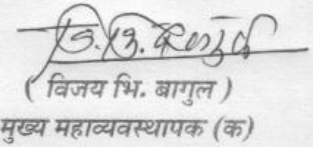 वि. भि. बागुल
( विजय भि. बागुल )
मुख्य महाव्यवस्थापक (क)